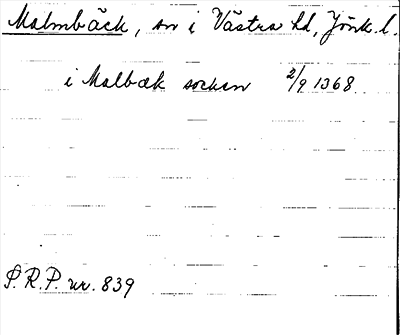 Malmbäck, sn i Västra hd, Jönk. l.
i Malbæk socken 2/9 1368
S.R.P. nr. 839